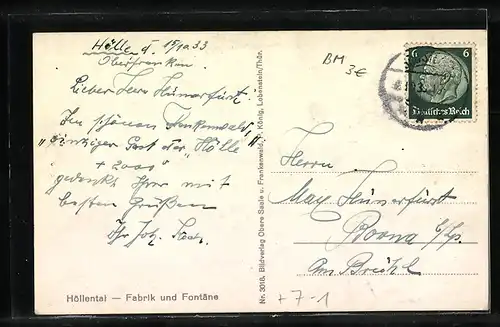 Hölle d. 15/10.33
Oberfranken
Lieber Herr Hünerfürst!
Im schönen Frankenwald,
"einziger Gast der Hölle"
+ 2000
gedenkt Ihrer mit
besten Grüßen
Ihr Joh.
Höllental — Fabrik und Fontäne
Nr. 3016. Bildverlag Obere Saale u. Frankenwald, R. König, Lobenstein/Thür.
BM
3€
6 6
Deutsches Reich
Herrn
Max Hünerfürst
Borna b/Lpz.
Am Breiht
+7-1